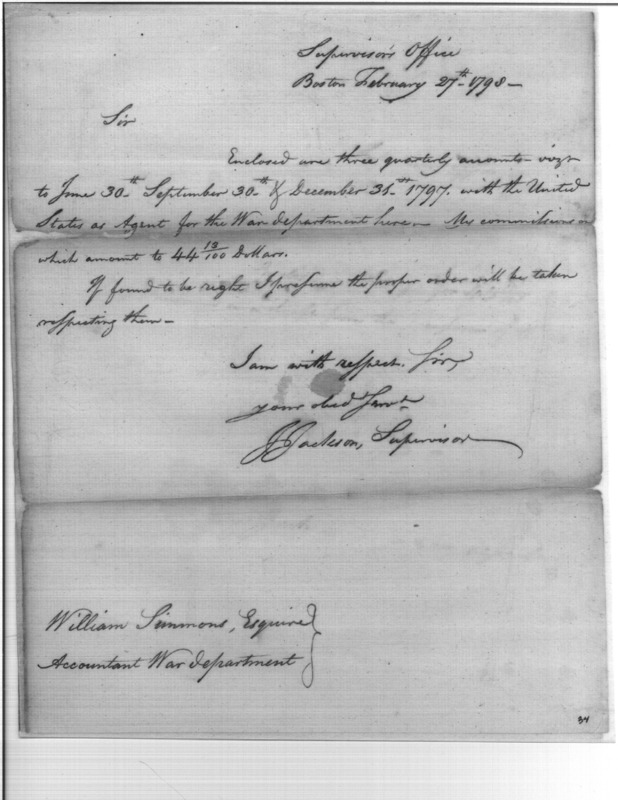 Supervisor's Office
Boston February 27th 1798
Sir
Enclosed are three quarterly accounts vizt
to June 30th September 30th & December 31st 1797. with the United
States as Agent for the War department here. My commissions on
which amount to 44 13/100 Dollars.
If found to be right I presume the proper order will be taken
respecting them
I am with respect. Sir,
your obed Servt
J Jackson, Supervisor
William Simmons, Esquire
Accountant War department
34